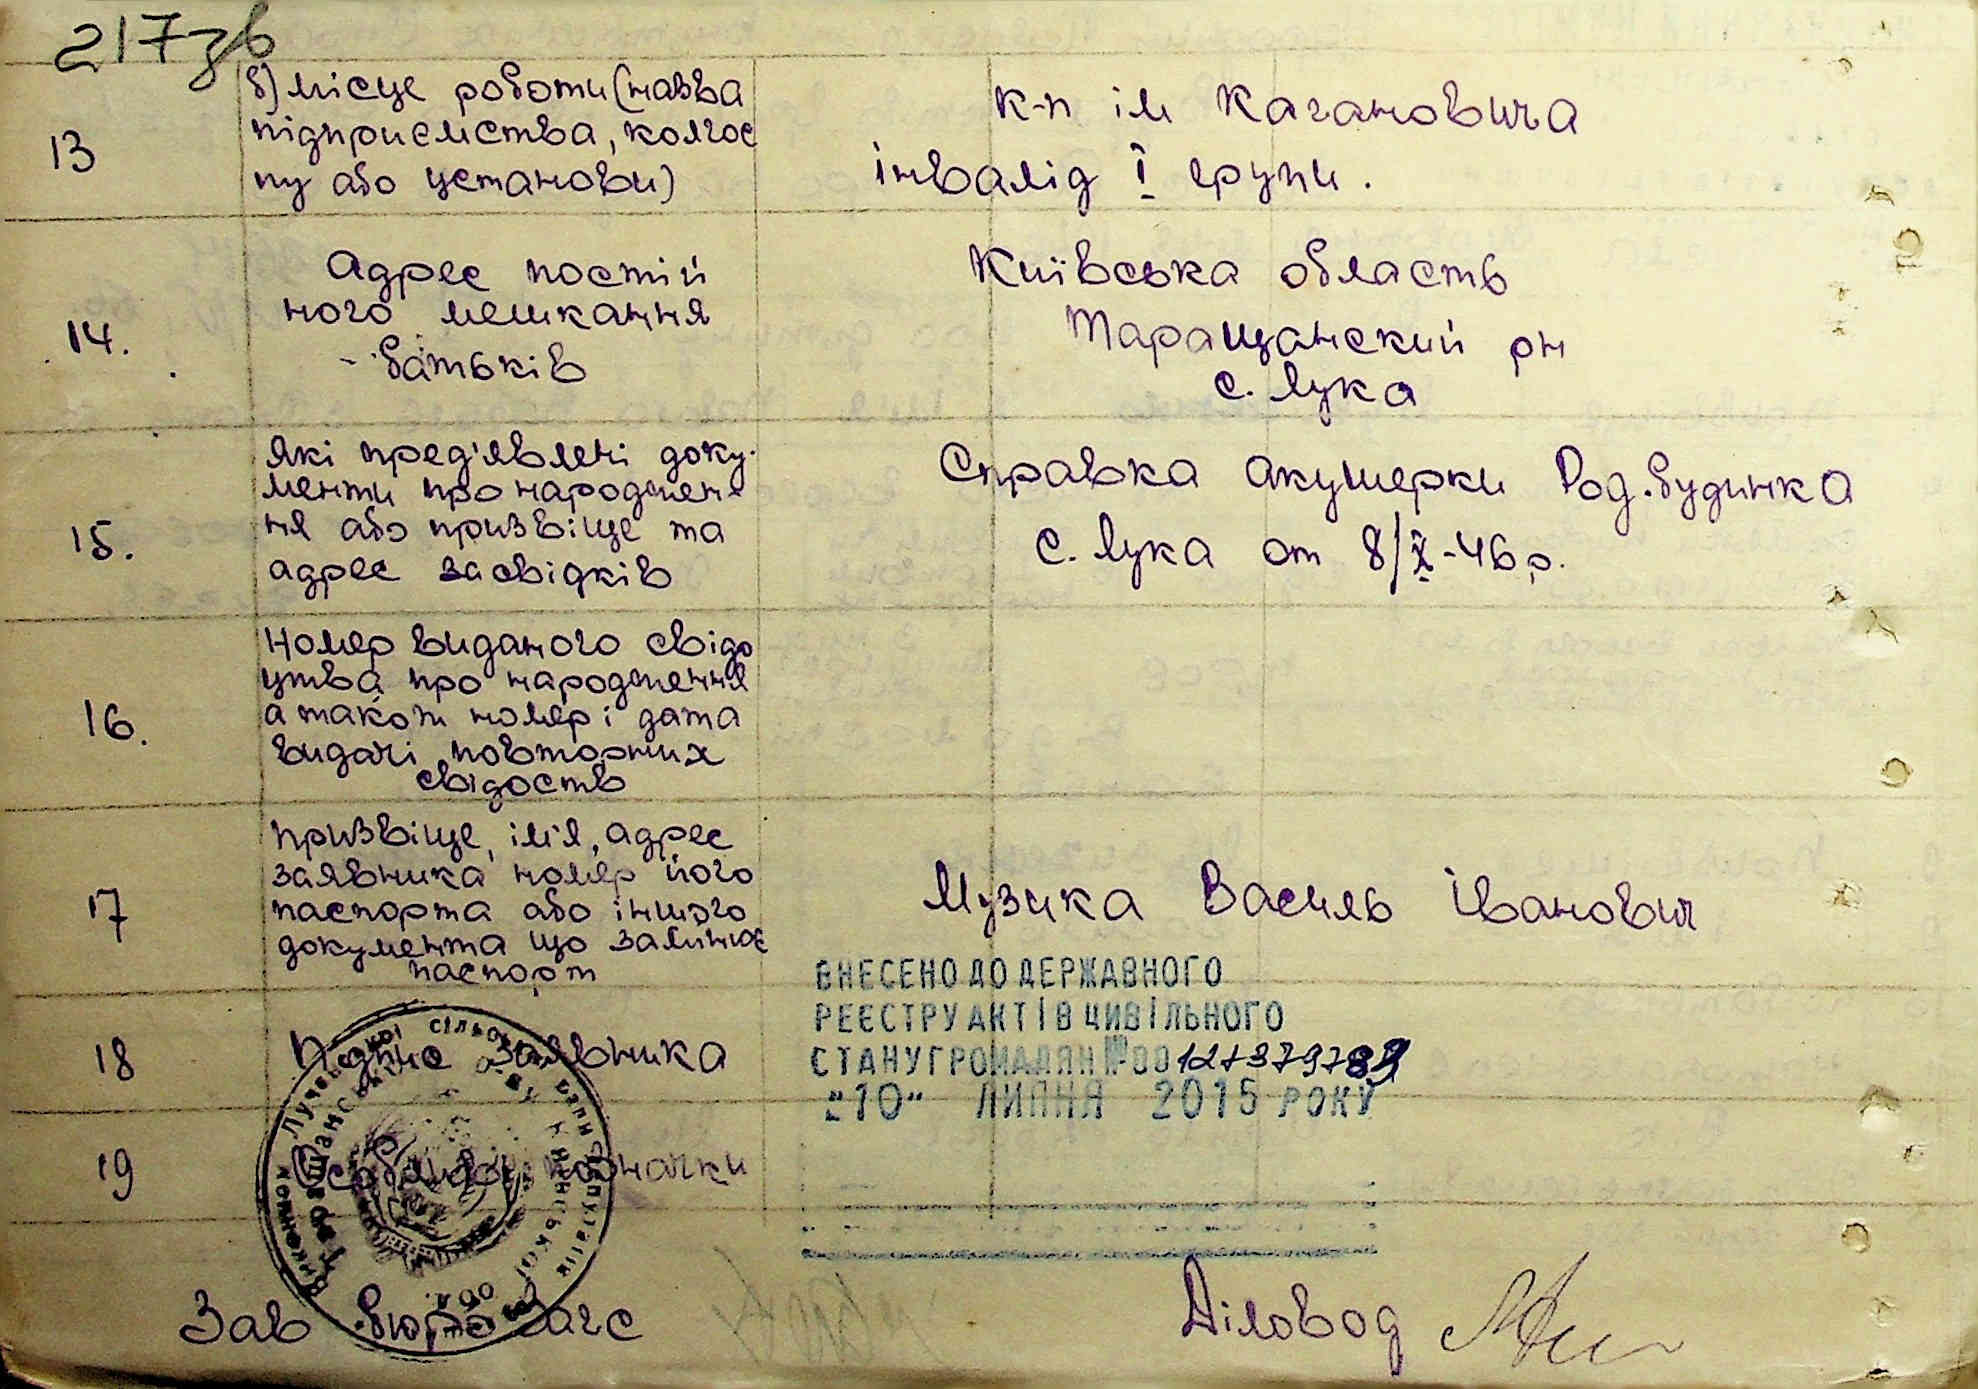 217зв
13
б) місце роботи (назва
підприємства, колгос
пу або установи)
к-п ім Кагановича
інвалід І групи.
14.
Адрес постій
ного мешкання
- батьків
Київська область
Таращанский рн
с. Лука
15.
Які пред'явлені доку-
менти про народжен-
ня або призвіще та
адрес засвідків
Справка акушерки Род. будинка
с. Лука от 8/X-46р.
16.
Номер виданого свідо
цтва про народження
а також номер і дата
видачі повторних
свідоств
17
Призвіще, ім'я, адрес
заявника номер його
паспорта або іншого
документа що заміняє
паспорт
Музика Василь Іванович
ВНЕСЕНО ДО ДЕРЖАВНОГО
РЕЄСТРУ АКТІВ ЦИВІЛЬНОГО
СТАНУ ГРОМАДЯН №00
"10" ЛИПНЯ 2015 РОКУ
18
Підпис заявника
19
Особливі позначки
Зав бюро Загс
Діловод